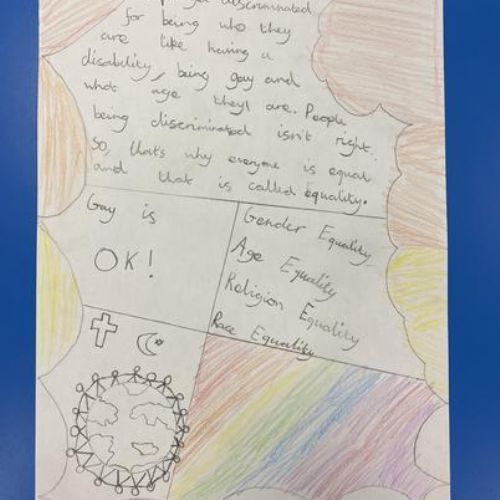 get discriminated
for being who they
are like having a
disability, being gay and
what age they are. People
being discriminated isn't right.
So, that's why everyone is equal
and that is called equality.
Gay is
OK!
Gender Equality
Age Equality
Religion Equality
Race Equality